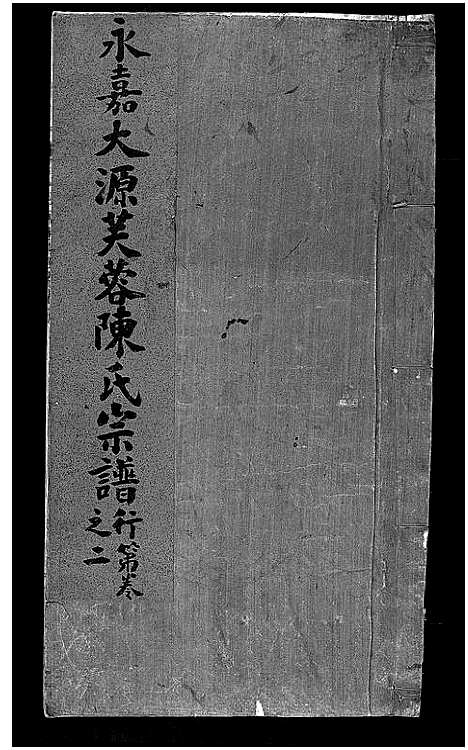 永嘉大源芙蓉陳氏宗譜
行第卷
之二